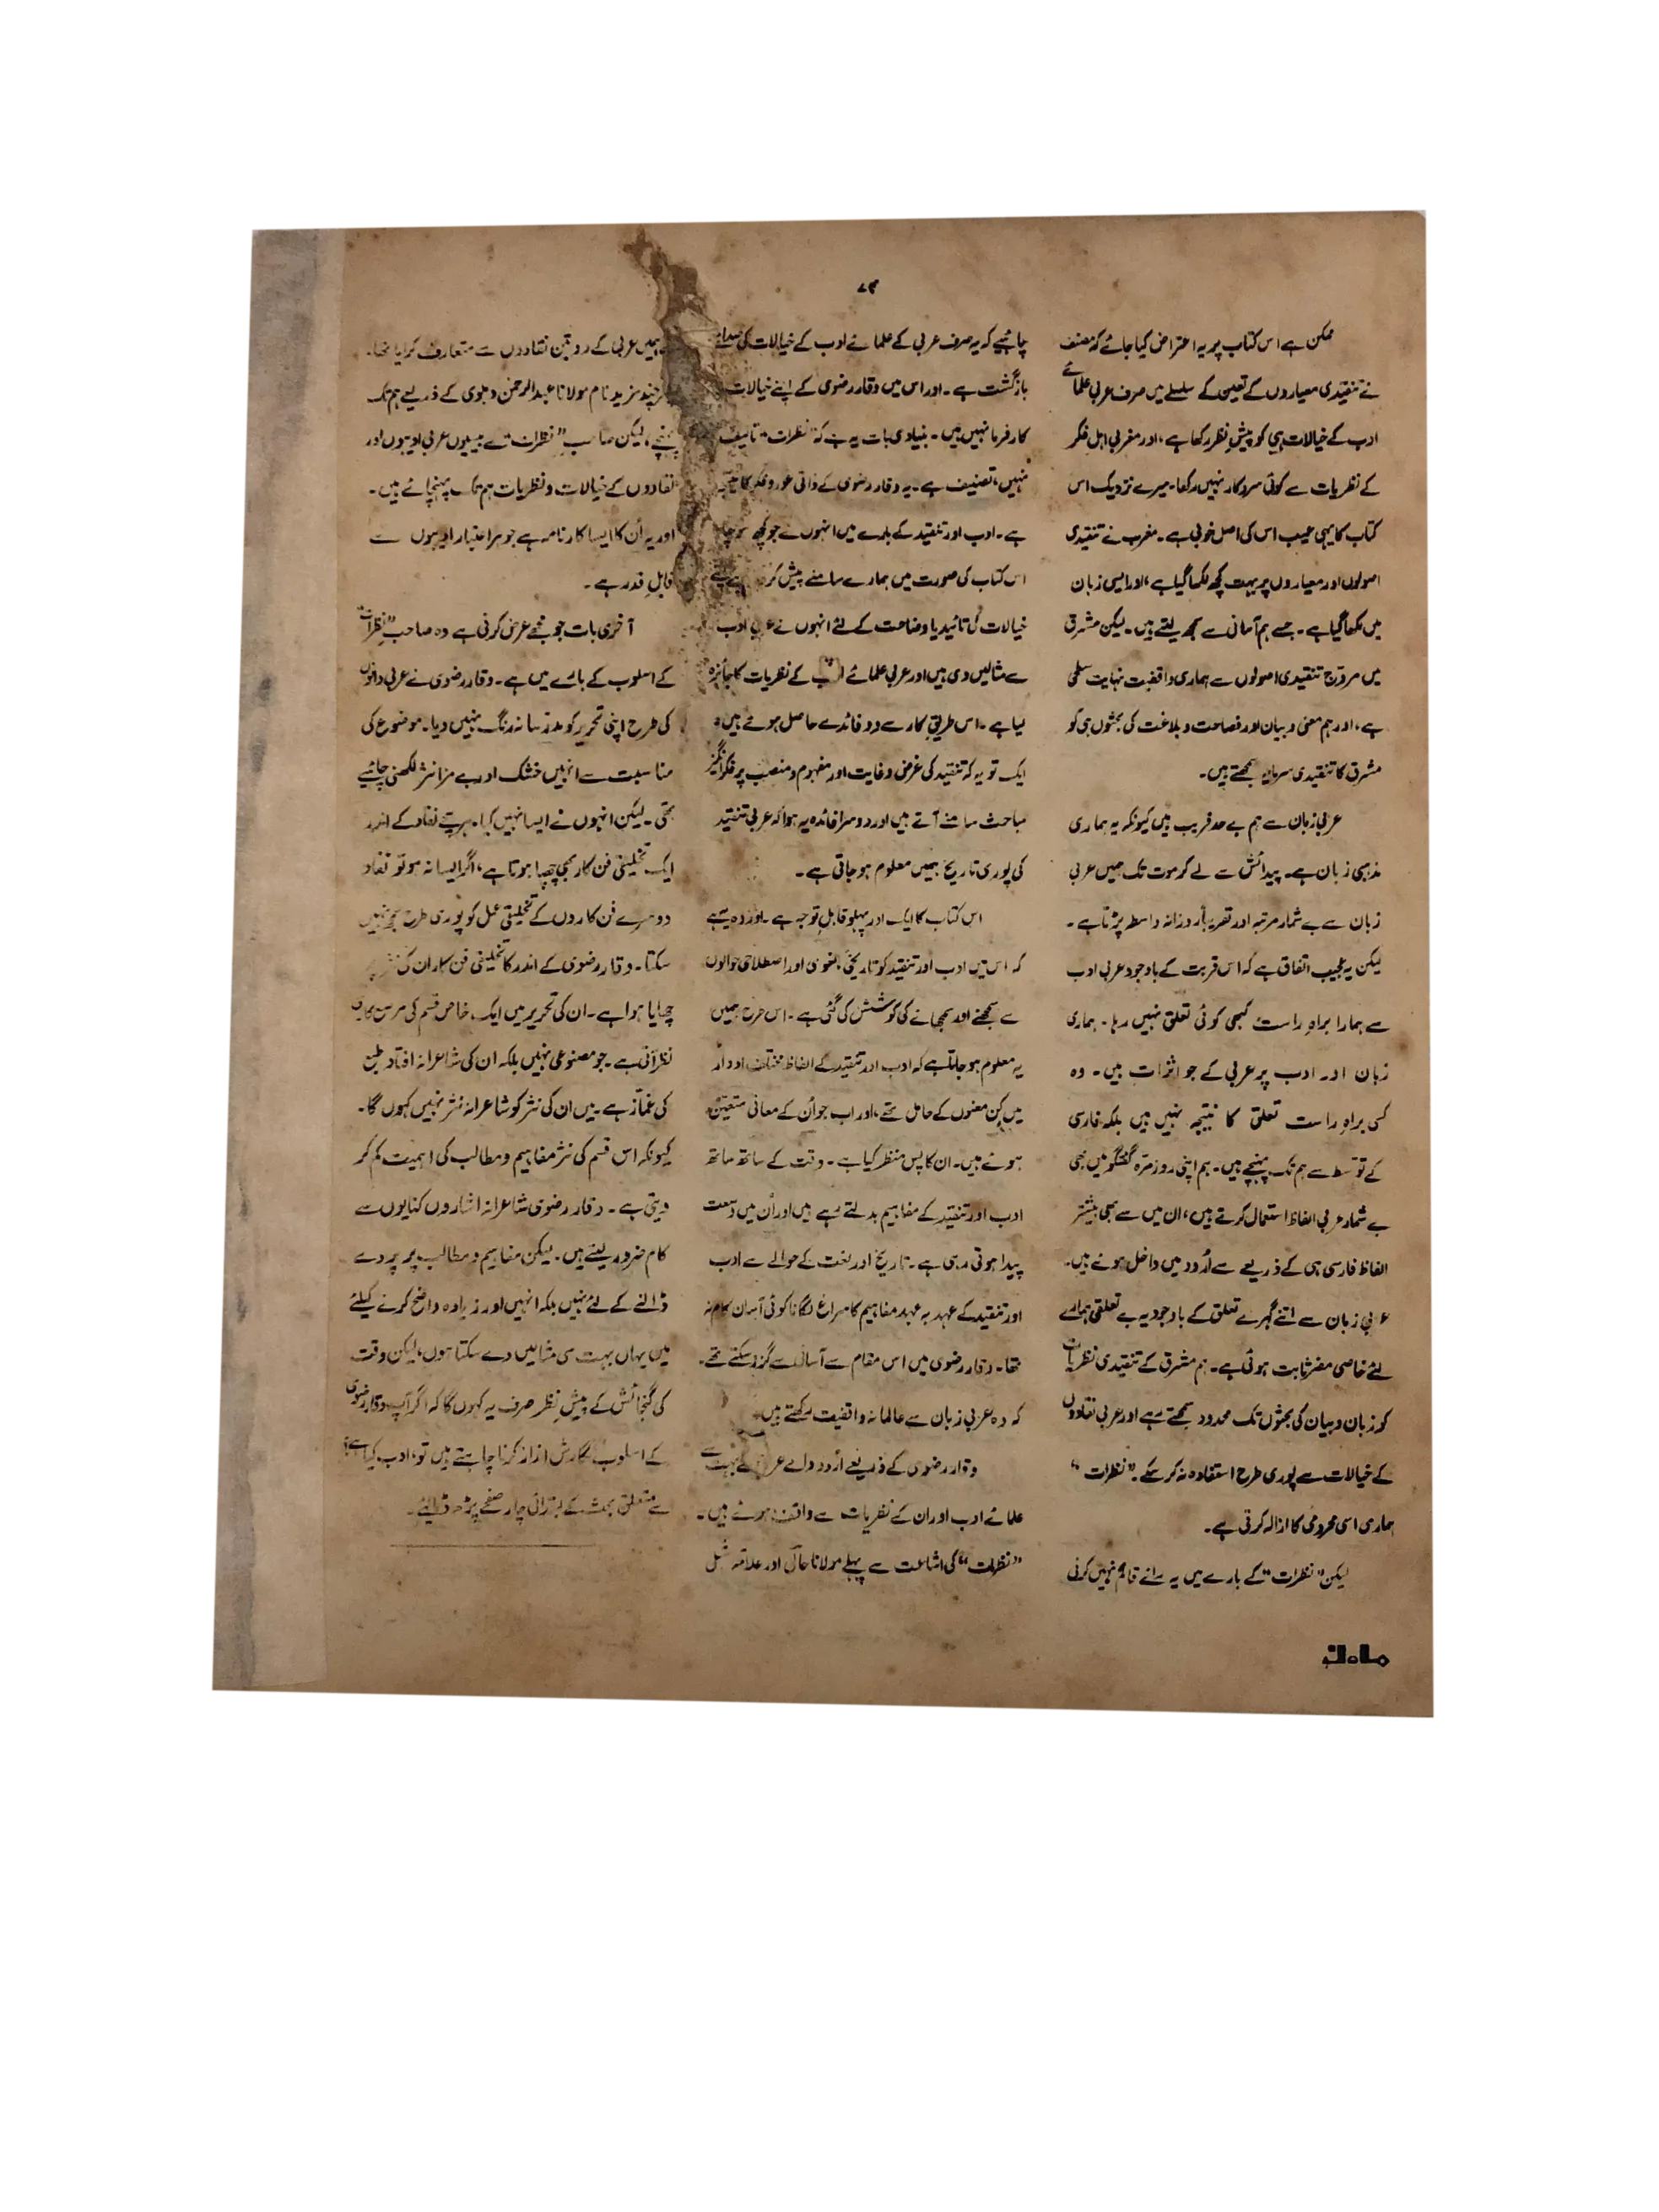 ۷۴
ممکن ہے اس کتاب پر یہ اعتراض کیا جائے کہ مصنف
نے تنقیدی معیاروں کے تعین کے سلسلے میں صرف عربی علمائے
ادب کے خیالات ہی کو پیشِ نظر رکھا ہے، اور مغربی اہلِ فکر
کے نظریات سے کوئی سروکار نہیں رکھا۔ میرے نزدیک اس
کتاب کا یہی عیب اس کی اصل خوبی ہے۔ مغرب نے تنقیدی
اصولوں اور معیاروں پر بہت کچھ لکھا گیا ہے، اور ایسی زبان
میں لکھا گیا ہے۔ جسے ہم آسانی سے سمجھ لیتے ہیں۔ لیکن مشرق
میں مروّج تنقیدی اصولوں سے ہماری واقفیت نہایت سطحی
ہے، اور ہم معنی و بیان اور فصاحت و بلاغت کی بحثوں ہی کو
مشرق کا تنقیدی سرمایہ سمجھتے ہیں۔
عربی زبان سے ہم بے حد قریب ہیں کیونکہ یہ ہماری
مذہبی زبان ہے۔ پیدائش سے لے کر موت تک ہمیں عربی
زبان سے بے شمار مرتبہ اور تقریباً روزانہ واسطہ پڑتا ہے۔
لیکن یہ عجیب اتفاق ہے کہ اس قربت کے باوجود عربی ادب
سے ہمارا براہِ راست کبھی کوئی تعلق نہیں رہا۔ ہماری
زبان اور ادب پر عربی کے جو اثرات ہیں۔ وہ
کسی براہِ راست تعلق کا نتیجہ نہیں ہیں بلکہ فارسی
کے توسّط سے ہم تک پہنچے ہیں۔ ہم اپنی روزمرّہ گفتگو میں بھی
بے شمار عربی الفاظ استعمال کرتے ہیں، ان میں سے بھی بیشتر
الفاظ فارسی ہی کے ذریعے سے اُردو میں داخل ہوئے ہیں۔
عربی زبان سے اتنے گہرے تعلق کے باوجود یہ بے تعلقی ہمارے
لئے خاصی مضر ثابت ہوئی ہے۔ ہم مشرق کے تنقیدی نظریات
کو زبان و بیان کی بحثوں تک محدود سمجھتے رہے اور عربی نقادوں
کے خیالات سے پوری طرح استفادہ نہ کر سکے۔ "نظرات"
ہماری اسی محرومی کا ازالہ کرتی ہے۔
لیکن "نظرات" کے بارے میں یہ رائے قائم نہیں کرنی
چاہیے کہ یہ صرف عربی کے علمائے ادب کے خیالات کی صدائے
بازگشت ہے۔ اور اس میں وقار رضوی کے اپنے خیالات
کارفرما نہیں ہیں۔ بنیادی بات یہ ہے کہ "نظرات" تالیف
نہیں، تصنیف ہے۔ یہ وقار رضوی کے ذاتی غور و فکر کا نتیجہ
ہے۔ ادب اور تنقید کے بارے میں انہوں نے جو کچھ سوچا
اس کتاب کی صورت میں ہمارے سامنے پیش کر
خیالات کی تائید یا وضاحت کے لئے انہوں نے عربی ادب
سے مثالیں دی ہیں اور عربی علمائے ادب کے نظریات کا جائزہ
لیا ہے۔ اس طریقِ کار سے دو فائدے حاصل ہوئے ہیں،
ایک تو یہ کہ تنقید کی غرض و غایت اور مفہوم و منصب پر فکر انگیز
مباحث سامنے آتے ہیں اور دوسرا فائدہ یہ ہوا کہ عربی تنقید
کی پوری تاریخ ہمیں معلوم ہو جاتی ہے۔
اس کتاب کا ایک اور پہلو قابلِ توجہ ہے۔ اور وہ یہ ہے
کہ اس میں ادب اور تنقید کو تاریخی، لغوی اور اصطلاحی حوالوں
سے سمجھنے اور سمجھانے کی کوشش کی گئی ہے۔ اس طرح ہمیں
یہ معلوم ہو جاتا ہے کہ ادب اور تنقید کے الفاظ مختلف ادوار
میں کن معنوں کے حامل تھے، اور اب جو اُن کے معانی متعین
ہوئے ہیں۔ ان کا پس منظر کیا ہے۔ وقت کے ساتھ ساتھ
ادب اور تنقید کے مفاہیم بدلتے رہے ہیں اور اُن میں وسعت
پیدا ہوتی رہی ہے۔ تاریخ اور لغت کے حوالے سے ادب
اور تنقید کے عہد بہ عہد مفاہیم کا سراغ لگانا کوئی آسان کام نہ
تھا۔ وقار رضوی میں اس مقام سے آسانی سے گزر سکتے تھے۔
کہ وہ عربی زبان سے عالمانہ واقفیت رکھتے ہیں۔
وقار رضوی کے ذریعے اُردو والے عربی کے بہت سے
علمائے ادب اور ان کے نظریات سے واقف ہوئے ہیں۔
"نظرات" کی اشاعت سے پہلے مولانا حالی اور علامہ شبلی
ہمیں عربی کے دو تین نقادوں سے متعارف کرایا تھا۔
چند مزید نام مولانا عبدالرحمن دہلوی کے ذریعے ہم تک
پہنچے، لیکن صاحبِ "نظرات" نے بیسیوں عربی ادیبوں اور
نقادوں کے خیالات و نظریات ہم تک پہنچائے ہیں۔
اور یہ اُن کا ایسا کارنامہ ہے جو ہر اعتبار سے
قابلِ قدر ہے۔
آخری بات جو مجھے عرض کرنی ہے وہ صاحبِ "نظرات"
کے اسلوب کے بارے میں ہے۔ وقار رضوی نے عربی دانوں
کی طرح اپنی تحریر کو مدرسانہ رنگ نہیں دیا۔ موضوع کی
مناسبت سے انہیں خشک اور بے مزا نثر لکھنی چاہیے
تھی۔ لیکن انہوں نے ایسا نہیں کیا۔ ہر سچے نقاد کے اندر
ایک تخلیقی فن کار بھی چھپا ہوتا ہے، اگر ایسا نہ ہو تو نقاد
دوسرے فن کاروں کے تخلیقی عمل کو پوری طرح سمجھ نہیں
سکتا۔ وقار رضوی کے اندر کا تخلیقی فن کار ان کی نثر پر
چھایا ہوا ہے۔ ان کی تحریر میں ایک خاص قسم کی مرصع کاری
نظر آتی ہے۔ جو مصنوعی نہیں بلکہ ان کی شاعرانہ افتادِ طبع
کی غماز ہے۔ میں ان کی نثر کو شاعرانہ نثر نہیں کہوں گا۔
کیونکہ اس قسم کی نثر مفاہیم و مطالب کی اہمیت کم کر
دیتی ہے۔ وقار رضوی شاعرانہ اشاروں کنایوں سے
کام ضرور لیتے ہیں۔ لیکن مفاہیم و مطالب پر پردے
ڈالنے کے لئے نہیں بلکہ انہیں اور زیادہ واضح کرنے کیلئے
میں یہاں بہت سی مثالیں دے سکتا ہوں، لیکن وقت
کی گنجائش کے پیشِ نظر صرف یہ کہوں گا کہ اگر آپ وقار رضوی
کے اسلوبِ نگارش کرنا چاہتے ہیں تو، ادب کیا ہے؟
سے متعلق بحث کے ابتدائی چار صفحے پڑھ ڈالیئے۔
ماہ نو